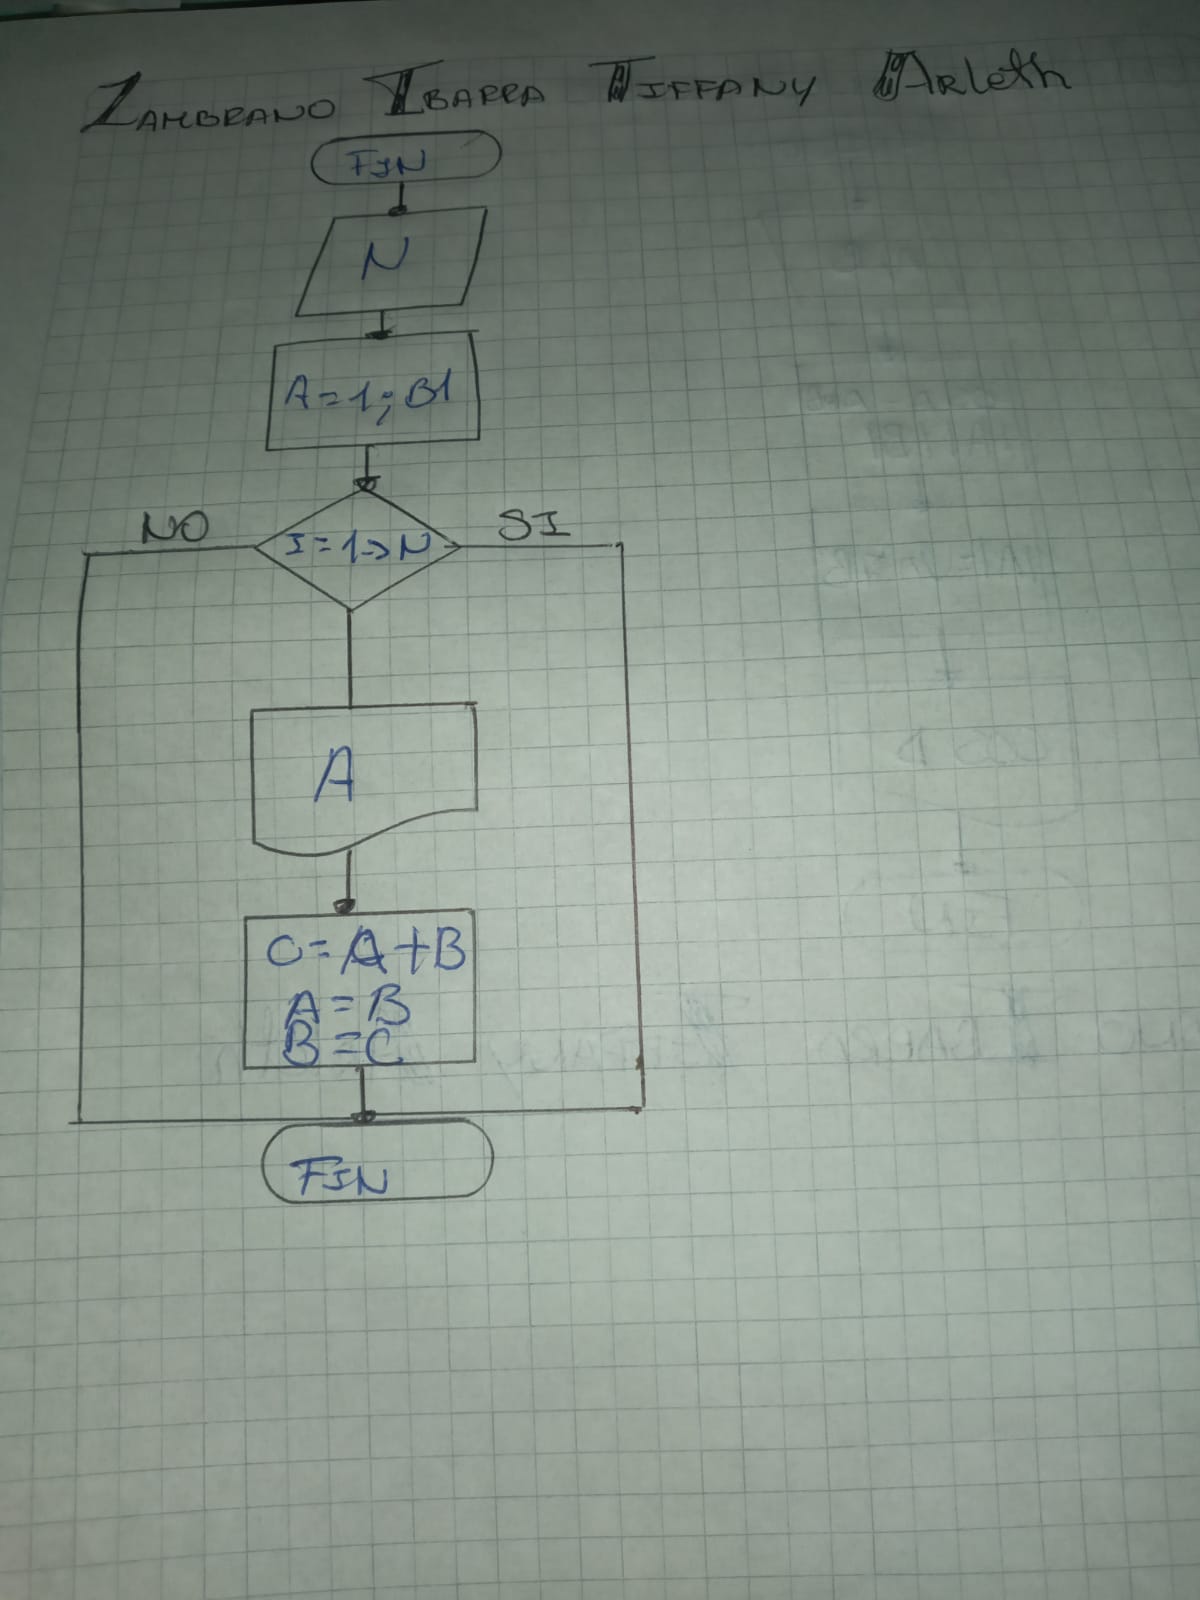 Zambrano Ibarra Tiffany Arleth
FIN
N
A=1; B1
NO
I=1->N
SI
A
C=A+B
A=B
B=C
FIN